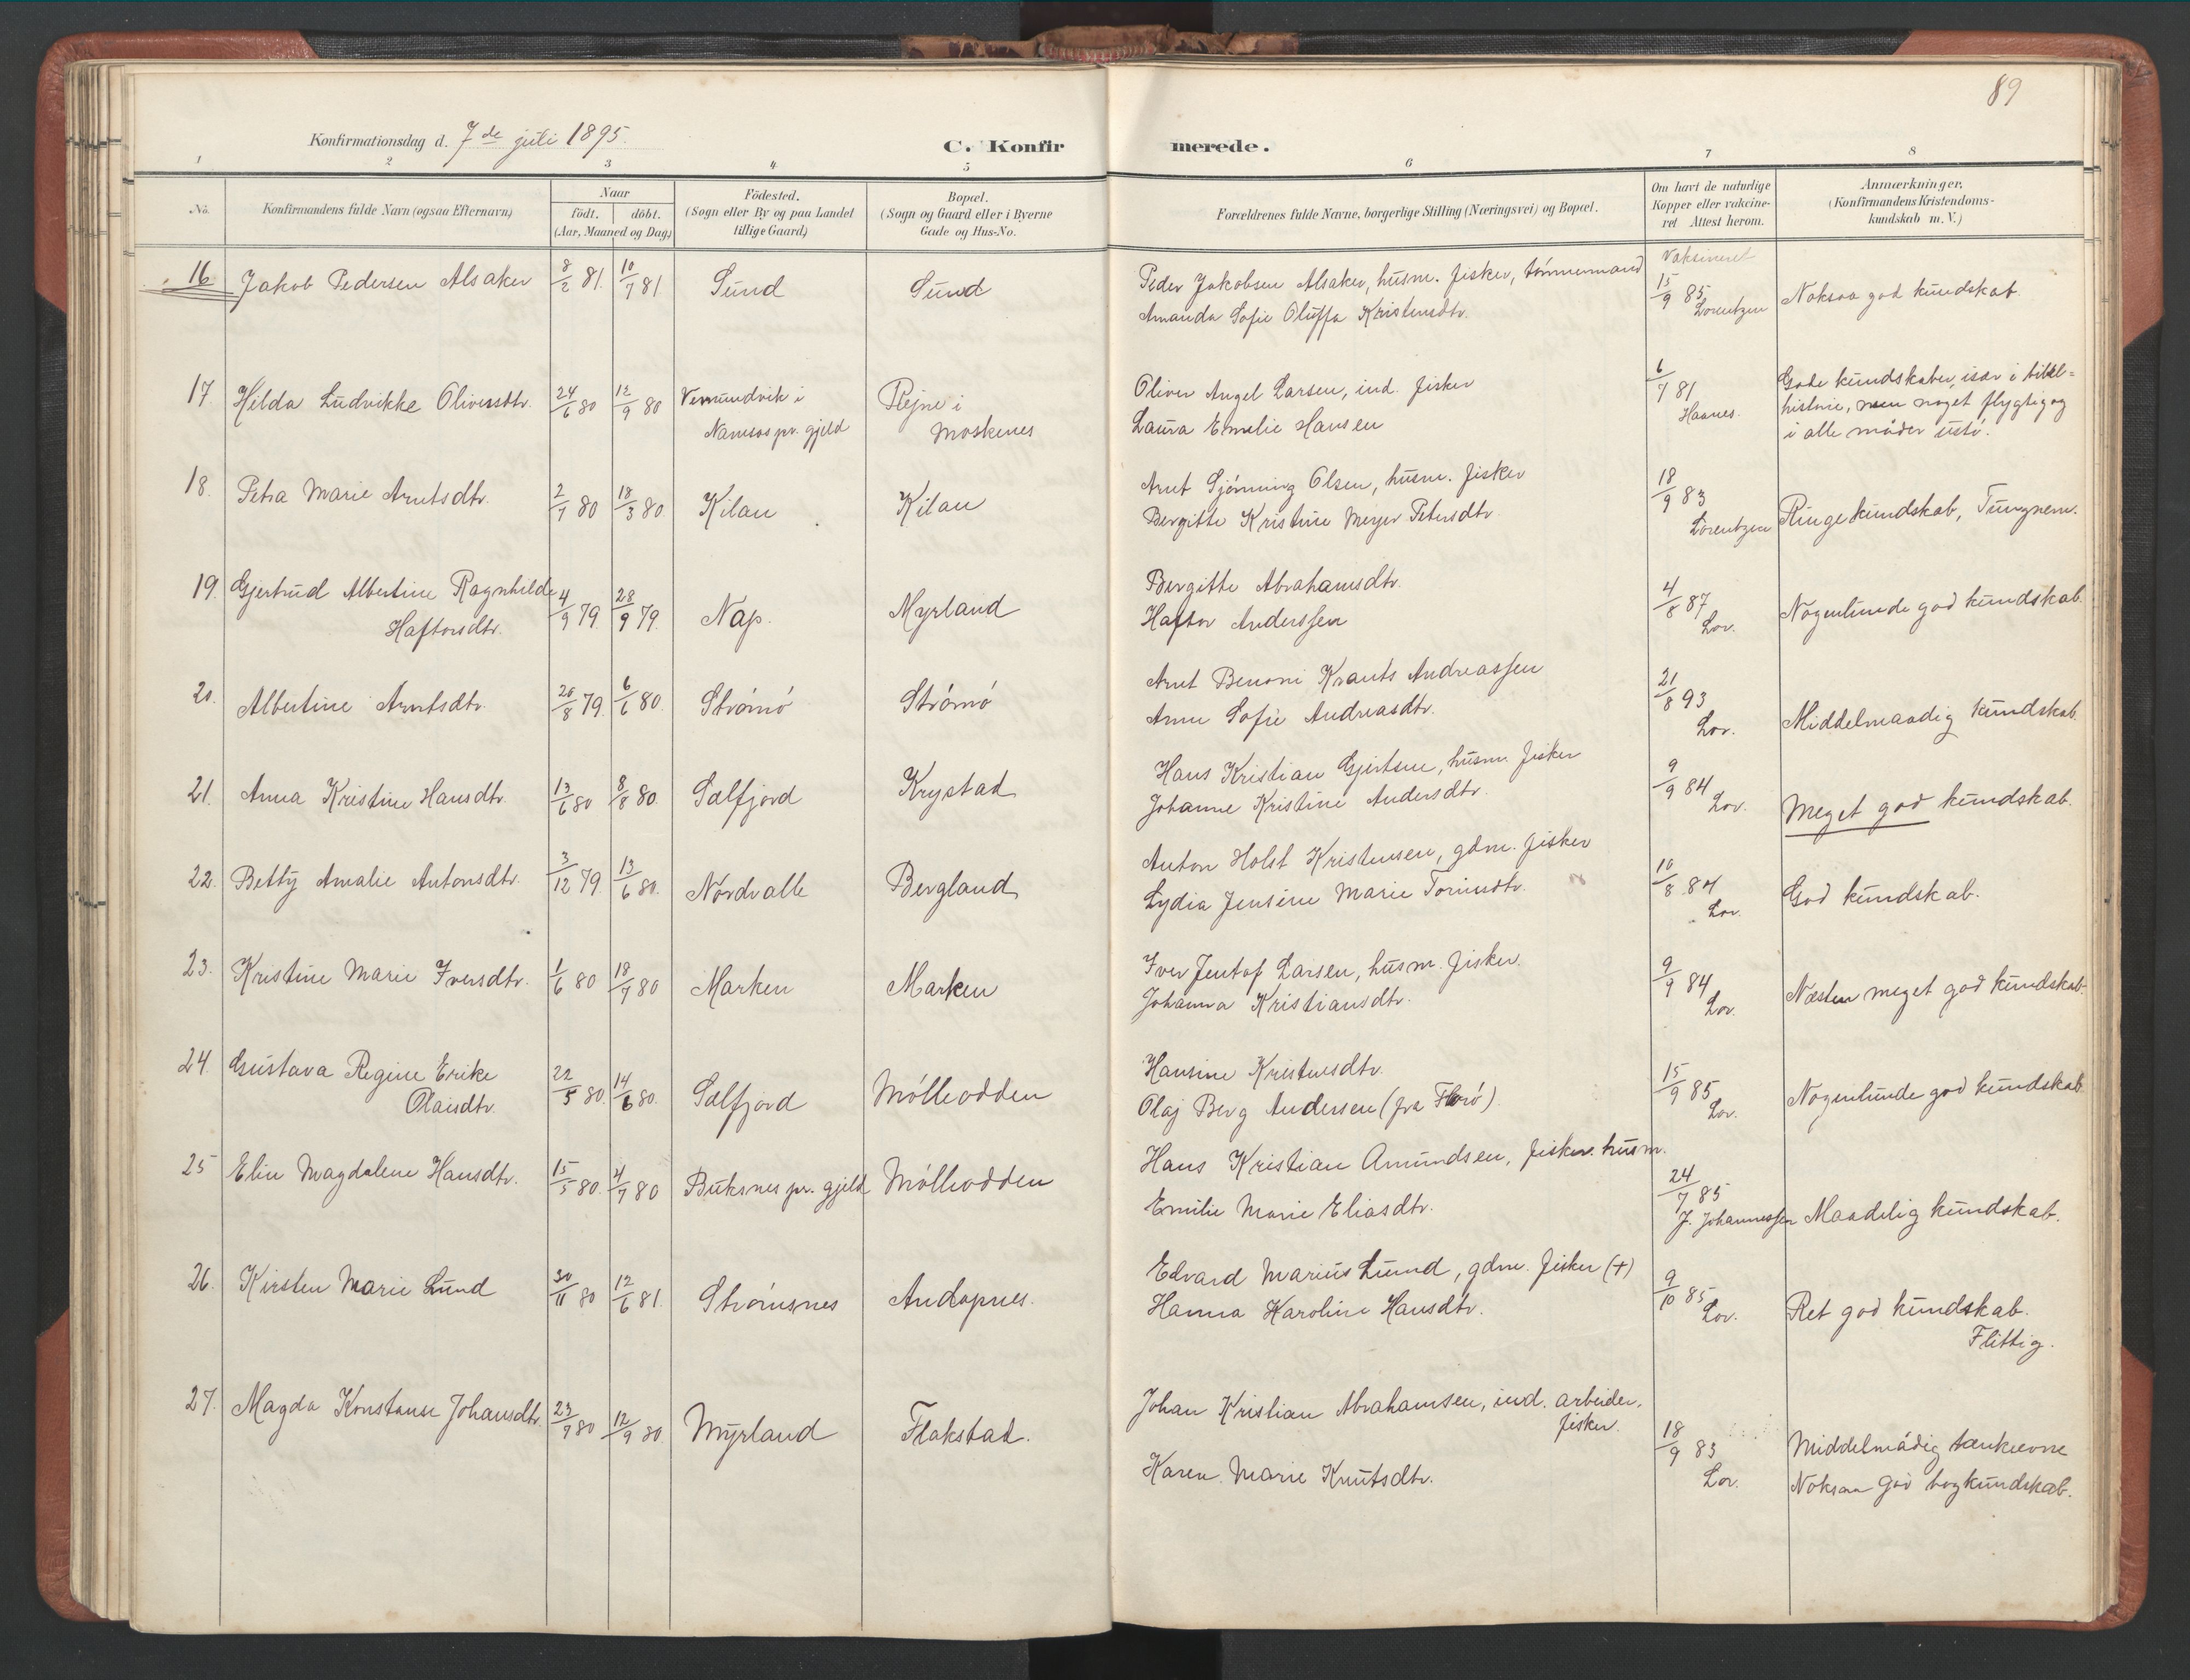 89
Konfirmationsdag d. 7de juli 1895.
C. Konfir merede.
1 2 3 4 5 6 7 8
No. Konfirmandens fulde Navn (ogsaa Efternavn) Naar födt. döbt. (Aar, Maaned og Dag) Födested. (Sogn eller By og paa Landet tillige Gaard) Bopæl. (Sogn og Gaard eller i Byerne Gade og Hus-No. Forældrenes fulde Navne, borgerlige Stilling (Næringsvei) og Bopæl. Om havt de naturlige Kopper eller vakcineret Attest herom. Anmærkninger. (Konfirmandens Kristendomskundskab m. V.)
16 Jakob Pedersen Alsaker 8/2 81. 10/7 81 Sund Sund Peder Jakobsen Alsaker, husm. fisker, tømmermand Vaksineret 15/9 85 Noksaa god kundskab.
Amanda Sofie Oluffa Kristensdtr. Lorentzen
17. Hilda Ludvikke Oliversdtr. 24/6 80 12/9 80 Vemundvik i Rejne i Oliver Angel Larsen, ind. fisker 6/7 81 Gode kundskaber, især i bibel=
Namsos pr. gjeld Moskenes Laura Emilie Hansen Haanes. historie, men noget flygtig og
i alle måder ustø.
18. Petra Marie Arntsdtr. 2/1 80 18/3 80. Kilan Kilan Arnt Gjønning Olsen, husm. fisker 18/9 83 Ringe kundskab, Tungnem.
Bergitte Kristine Meyer Petersdtr. Lorentzen
19. Gjertrud Albertine Ragnhilde 4/9 79. 28/9 79. Nap. Myrland Bergitte Abrahamsdtr. 4/8 87 Nogenlunde god kundskab.
Haftorsdtr. Haftor Anderssen Lor.
20. Albertine Arntsdtr. 20/8 79. 6/6 80. Strømø Strømø Arnt Benoni Krants Andreassen 21/8 93 Middelmaadig kundskab.
Anne Sofie Andreasdtr. Lor.
21. Anna Kristine Hansdtr. 13/6 80 8/8 80. Sælfjord Krystad Hans Kristian Gjertsen, husm. fisker 9/9 84 Meget god kundskab.
Johanne Kristine Andersdtr. Lor.
22. Betty Amalie Antonsdtr. 3/12 79. 13/6 80. Nordvalle Bergland Anton Holst Kristensen, gdm. fisker 10/8 84 God kundskab.
Lydia Jensine Marie Lor.
23. Kristine Marie Iversdtr. 1/6 80 18/7 80 Marken Marken Iver Jentof Larsen, husm. fisker. 9/9 84 Næsten meget god kundskab.
Johanna Kristiansdtr. Lor.
24. Gustava Regine Erike 22/5 80. 14/6 80. Sælfjord Mølleodden Hansine Kristensdtr. 15/9 85 Nogenlunde god kundskab
Olaisdtr. Olaj Berg Andersen (fra Florø). Lor.
25 Elin Magdalene Hansdtr. 15/5 80. 4/7 80 Buksnes pr. gjeld Mølleodden Hans Kristian Amundsen, fisker. husm. 24/7 85 Maadelig kundskab.
Emilie Marie Eliasdtr. J. Johannessen
26. Kirsten Marie Lund 30/11 80 12/6 81. Strømsnes Andopnes. Edvard Marius Lund, gdm. fisker (+) 9/10 85 Ret god kundskab.
Hanna Karoline Hansdtr. Lor. Flittig.
27. Magda Konstanse Johansdtr. 23/7 80 12/9 80. Myrland Flakstad. Johan Kristian Abrahamsen, ind. arbeider, 18/9 83 Middelmådig tænkeevne
fisker. Lor. Noksaa god bogkundskab.
Karen Marie Knutsdtr.